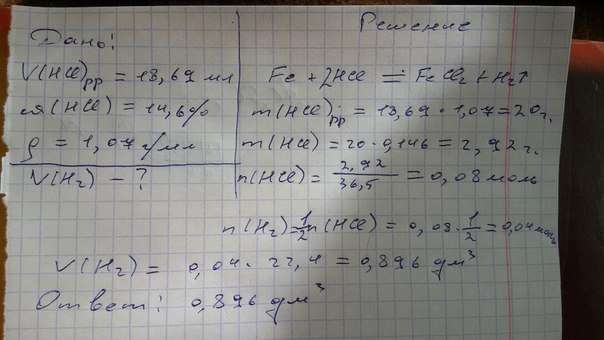 Дано:
V(HCl)рр = 18,69 мл
ω(HCl) = 14,6%
ρ = 1,07 г/мл
V(H₂) - ?
Решение
Fe + 2HCl = FeCl₂ + H₂↑
m(HCl)рр = 18,69 · 1,07 = 20г.
m(HCl) = 20 · 0,146 = 2,92 г.
n(HCl) = 2,92/36,5 = 0,08 моль
n(H₂) = 1/2 n(HCl) = 0,08 · 1/2 = 0,04 моль
V(H₂) = 0,04 · 22,4 = 0,896 дм³
Ответ: 0,896 дм³